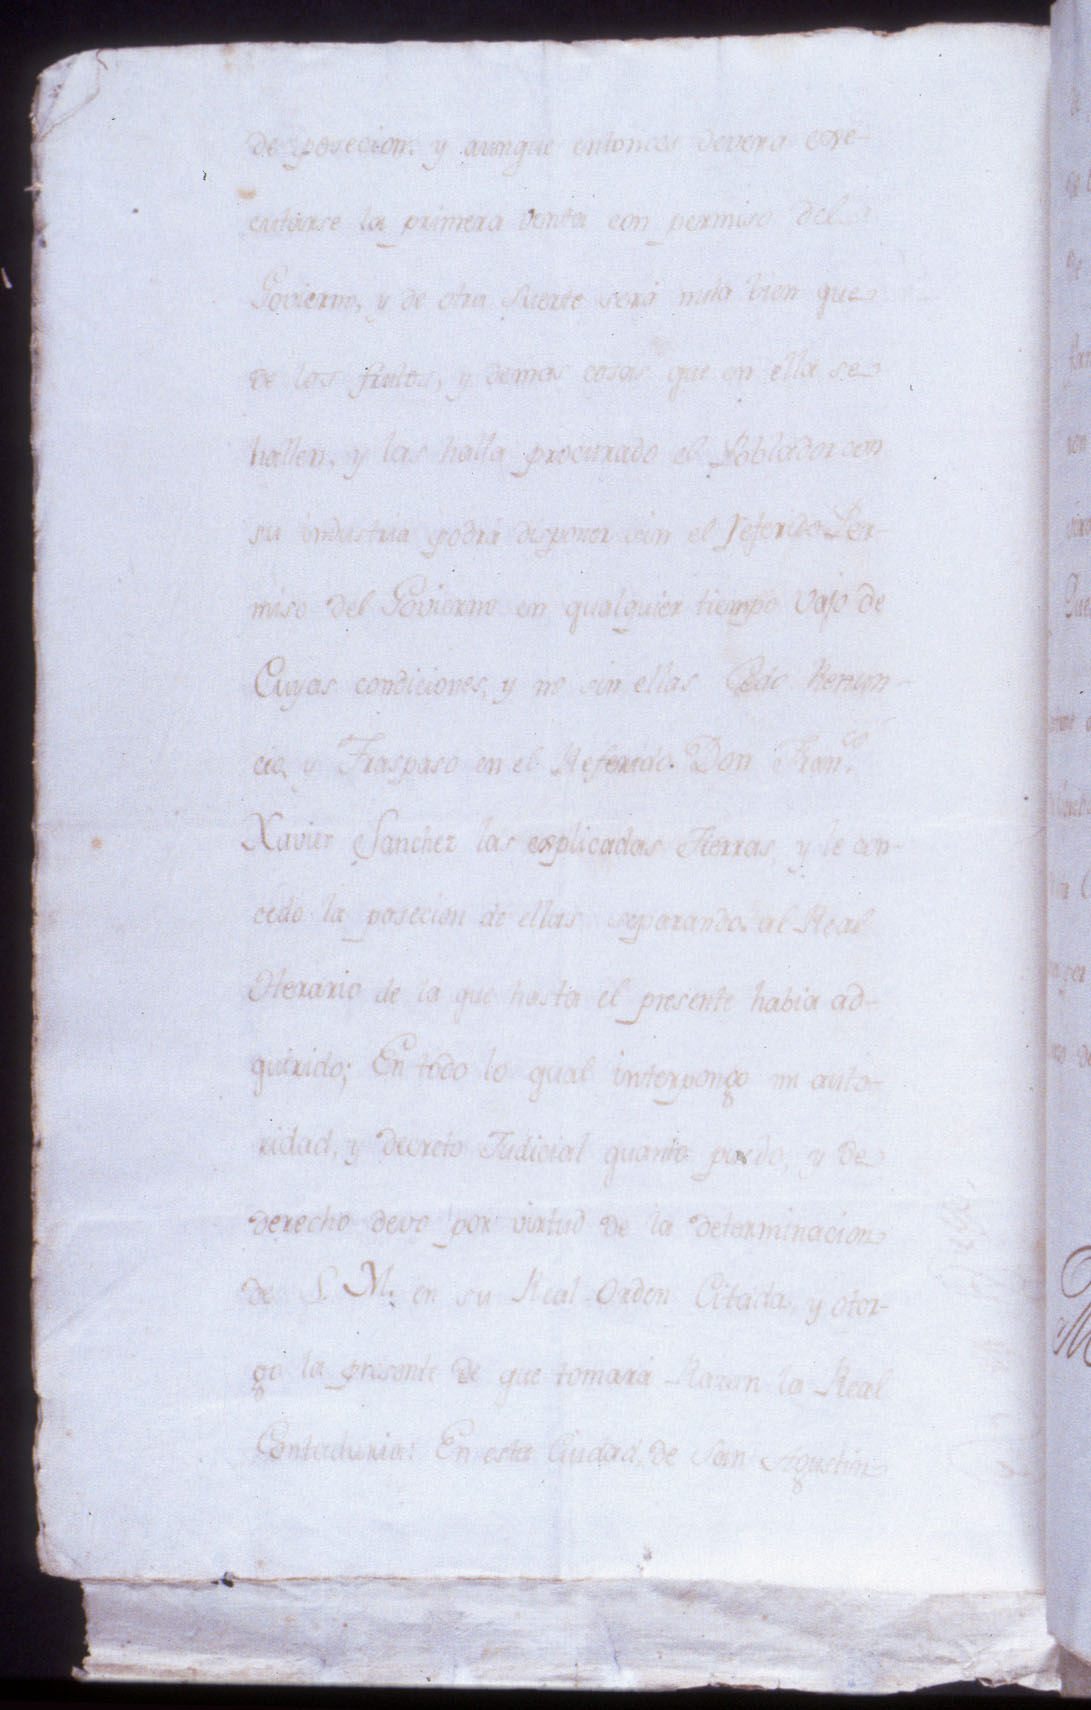 de posecion. y aunque entonces devera exe-
cutarse la primera venta con permiso del
Govierno, y de otra Suerte será nula bien que
de los frutos, y demas cosas que en ella se
hallen, y las halla procurado el Poblador con
su industria podrá disponer sin el referido Per-
miso del Govierno en qualquier tiempo vajo de
Cuyas condiciones, y no sin ellas Cedo Renun-
cio, y Traspaso en el Referido. Don Fran.co
Xavier Sanchez las esplicadas Tierras, y le con-
cedo la posecion de ellas separando. al Real
Herario de la que hasta el presente habia ad-
quirido; En todo lo qual interpongo mi auto-
ridad, y decreto Judicial quanto puedo, y de
derecho devo por virtud de la determinacion
de S. M. en su Real Orden Citada, y otor-
go la presente de que tomará Razon la Real
Contaduria: En esta Ciudad, de San Agustin